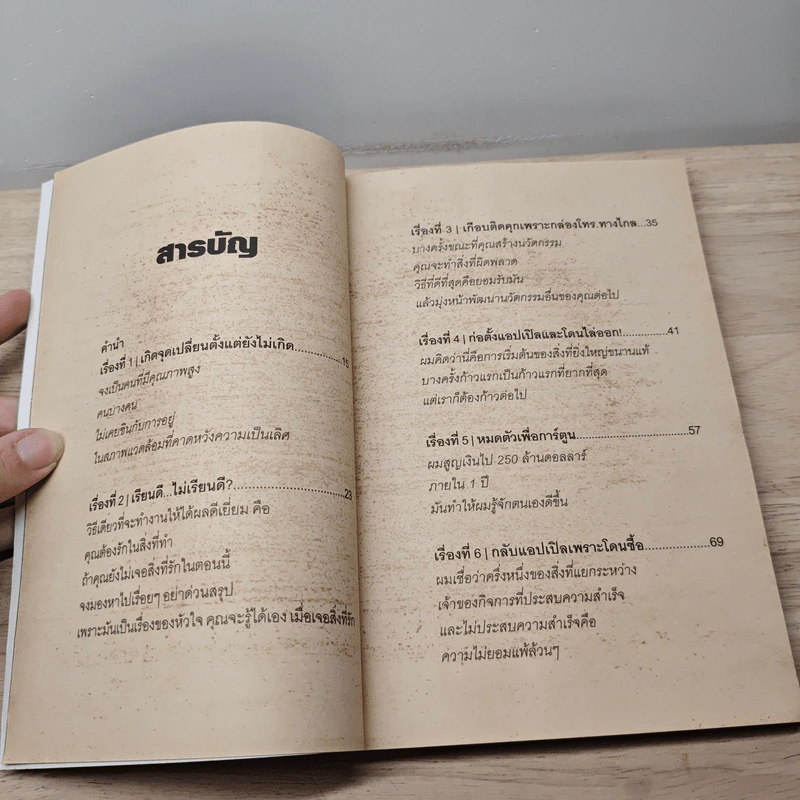 สารบัญ
คำนำ
เรื่องที่ 1 | เกิดจุดเปลี่ยนตั้งแต่ยังไม่เกิด............15
จงเป็นคนที่มีคุณภาพสูง
คนบางคน
ไม่เคยชินกับการอยู่
ในสภาพแวดล้อมที่คาดหวังความเป็นเลิศ
เรื่องที่ 2 | เรียนดี...ไม่เรียนดี?............................23
วิธีเดียวที่จะทำงานให้ได้ผลดีเยี่ยม คือ
คุณต้องรักในสิ่งที่ทำ
ถ้าคุณยังไม่เจอสิ่งที่รักในตอนนี้
จงมองหาไปเรื่อยๆ อย่าด่วนสรุป
เพราะมันเป็นเรื่องของหัวใจ คุณจะรู้ได้เอง เมื่อเจอสิ่งที่รัก
เรื่องที่ 3 | เกือบติดคุกเพราะกล่องโทร.ทางไกล...35
บางครั้งขณะที่คุณสร้างนวัตกรรม
คุณจะทำสิ่งที่ผิดพลาด
วิธีที่ดีที่สุดคือยอมรับมัน
แล้วมุ่งหน้าพัฒนานวัตกรรมอื่นของคุณต่อไป
เรื่องที่ 4 | ก่อตั้งแอปเปิลและโดนไล่ออก!............41
ผมคิดว่านี่คือการเริ่มต้นของสิ่งที่ยิ่งใหญ่ขนานแท้
บางครั้งก้าวแรกเป็นก้าวแรกที่ยากที่สุด
แต่เราก็ต้องก้าวต่อไป
เรื่องที่ 5 | หมดตัวเพื่อการ์ตูน..............................57
ผมสูญเงินไป 250 ล้านดอลลาร์
ภายใน 1 ปี
มันทำให้ผมรู้จักตนเองดีขึ้น
เรื่องที่ 6 | กลับแอปเปิลเพราะโดนซื้อ.................69
ผมเชื่อว่าครึ่งหนึ่งของสิ่งที่แยกระหว่าง
เจ้าของกิจการที่ประสบความสำเร็จ
และไม่ประสบความสำเร็จคือ
ความไม่ยอมแพ้ล้วนๆ